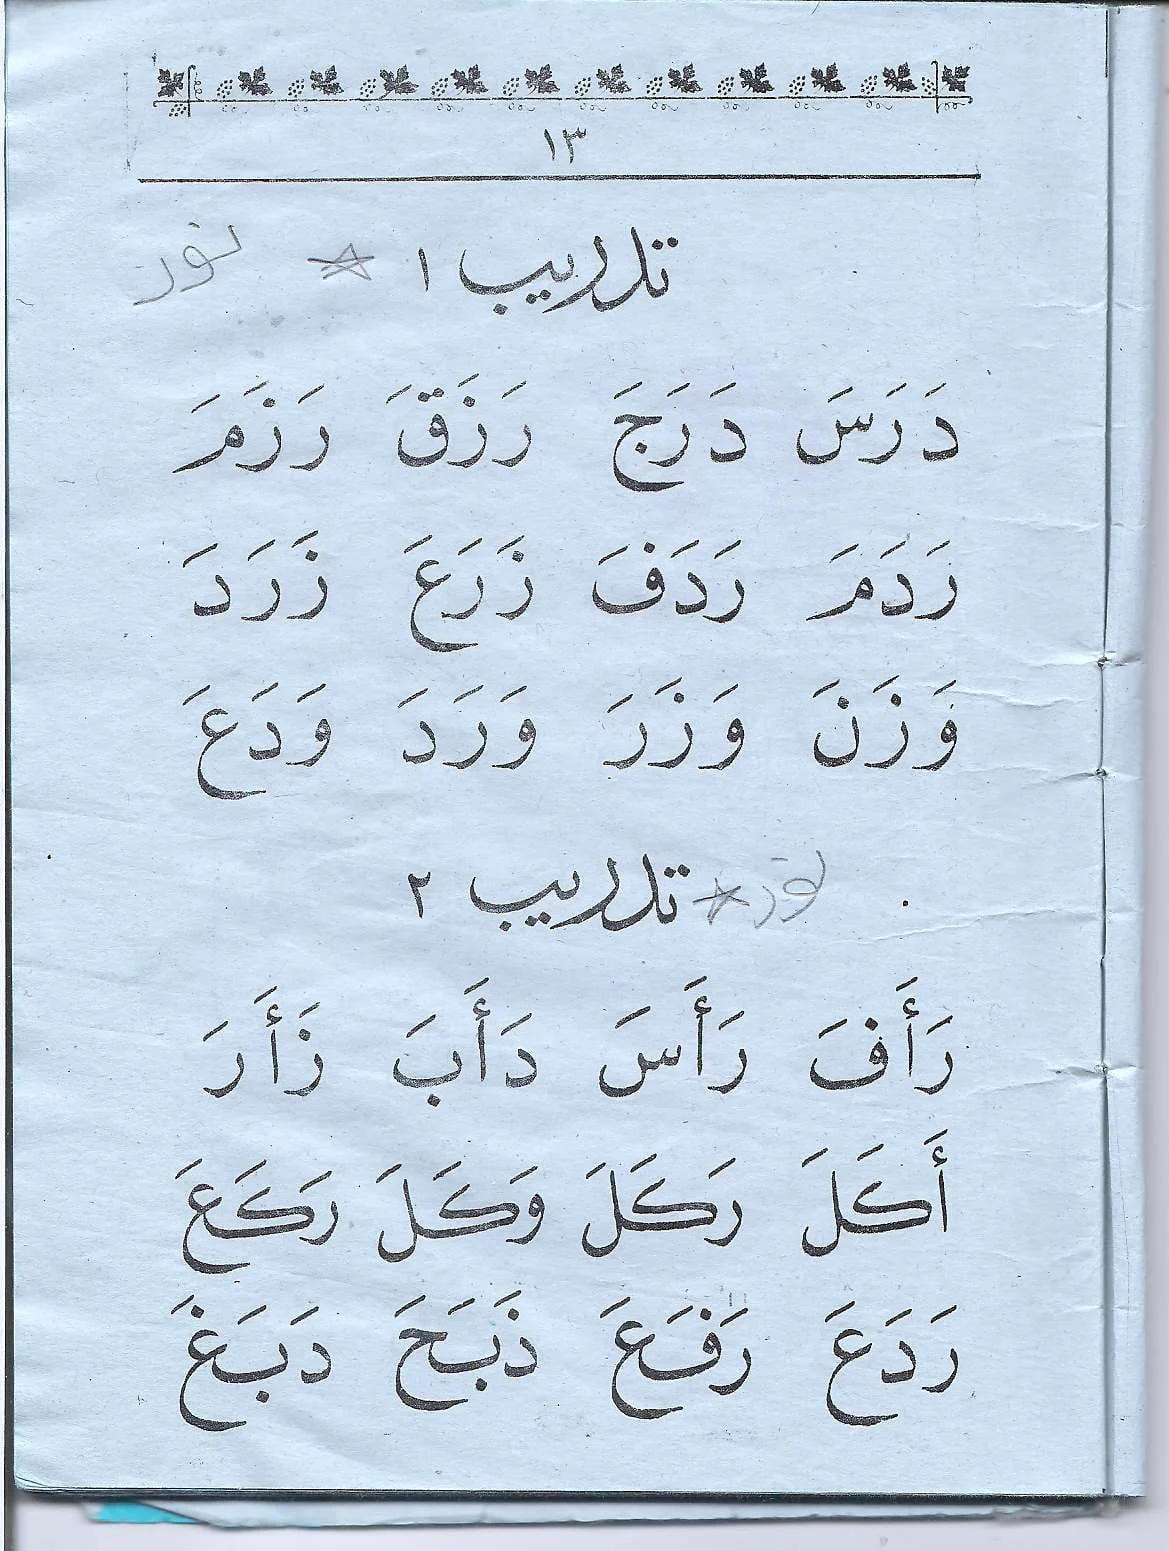 ١٣
تدريب ١ نور
دَرَسَ دَرَجَ رَزَقَ رَزَمَ
رَدَمَ رَدَفَ زَرَعَ زَرَدَ
وَزَنَ وَزَرَ وَرَدَ وَدَعَ
نور تدريب ٢
رَأَفَ رَأَسَ دَأَبَ زَأَرَ
أَكَلَ رَكَلَ وَكَلَ رَكَعَ
رَدَعَ رَفَعَ ذَبَحَ دَبَغَ